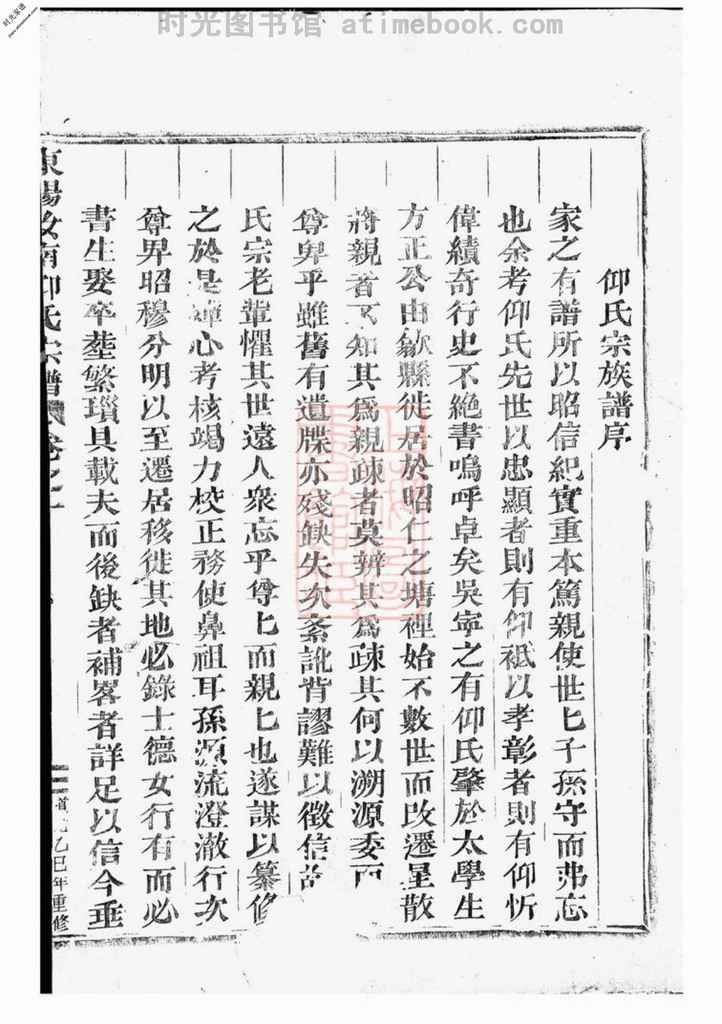 时光图书馆 atimebook.com
时光家谱
仰氏宗族譜序
家之有譜所以昭信紀實重本篤親使世匕子孫守而弗忘
也余考仰氏先世以忠顯者則有仰祗以孝彰者則有仰忻
偉績奇行史不絶書嗚呼卓矣吳寧之有仰氏肇於太學生
方正公由歙縣徙居於昭仁之塘裡始不數世而改遷星散
將親者不知其爲親疎者莫辨其爲疎其何以溯源委而
尊卑乎雖舊有遺牒亦殘缺失次紊訛背謬難以徵信
氏宗老輩懼其世遠人衆忘乎尊匕而親匕也遂謀以纂修
之於是殫心考核竭力校正務使鼻祖耳孫源流澄澈行次
尊畀昭穆分明以至遷居移徙其地必錄士德女行有而必
書生娶卒塟繁瑣具載夫而後缺者補畧者詳足以信今垂
東陽汝南仰氏宗譜 卷之一
一 道光乙巳年重修